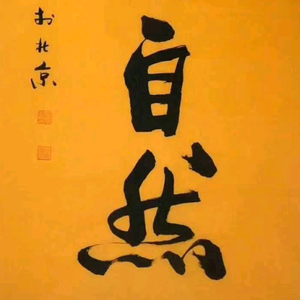 自然
于北京